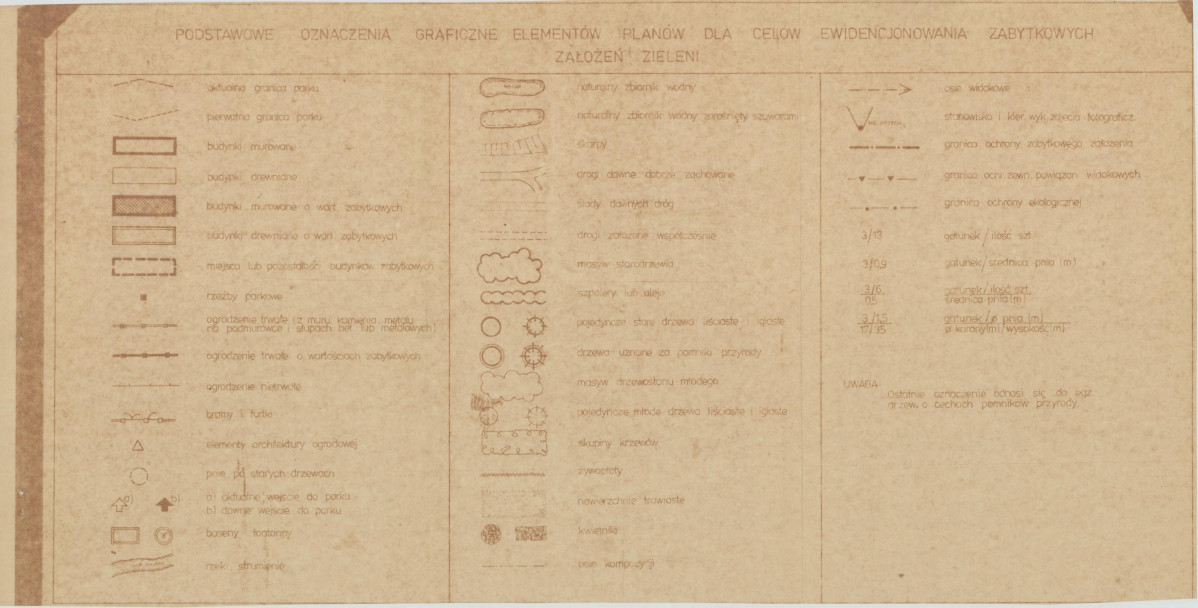 PODSTAWOWE OZNACZENIA GRAFICZNE ELEMENTÓW PLANÓW DLA CELÓW EWIDENCJONOWANIA ZABYTKOWYCH
ZAŁOŻEŃ ZIELENI
aktualna granica parku
pierwotna granica parku
budynki murowane
budynki drewniane
budynki murowane o wart. zabytkowych
budynki drewniane o wart. zabytkowych
miejsca lub pozostałość budynków zabytkowych
rzeźby parkowe
ogrodzenie trwałe (z muru, kamienia, metalu
na podmurówce i słupach bet. lub metalowych)
ogrodzenie trwałe o wartościach zabytkowych
ogrodzenie nietrwałe
bramy i furtki
elementy architektury ogrodowej
pnie po starych drzewach
a)
b)
a) aktualne wejście do parku
b) dawne wejście do parku
baseny fontanny
rzeki strumienie
naturalny zbiornik wodny
naturalny zbiornik wodny zarośnięty szuwarami
skarpy
drogi dawne dobrze zachowane
ślady dawnych dróg
drogi założone współcześnie
masyw starodrzewia
szpalery lub aleje
pojedyncze stare drzewa liściaste i iglaste
drzewa uznane za pomniki przyrody
masyw drzewostanu młodego
pojedyncze młode drzewa liściaste i iglaste
skupiny krzewów
żywopłoty
nawierzchnie trawiaste
kwietniki
osie kompozycji
osie widokowe
stanowisko i kier. wyk. zdjęcia fotograficz.
granica ochrony zabytkowego założenia
granica ochr. zewn. powiązań widokowych
granica ochrony ekologicznej
3/13 gatunek/ilość szt.
3/0,9 gatunek/średnica pnia (m)
3/6 gatunek/ilość szt.
0,5 średnica pnia (m)
3/1,5 gatunek/ø pnia (m)
17/35 ø korony(m)/wysokość(m)
UWAGA
Ostatnie oznaczenie odnosi się do egz.
drzew o cechach pomników przyrody.